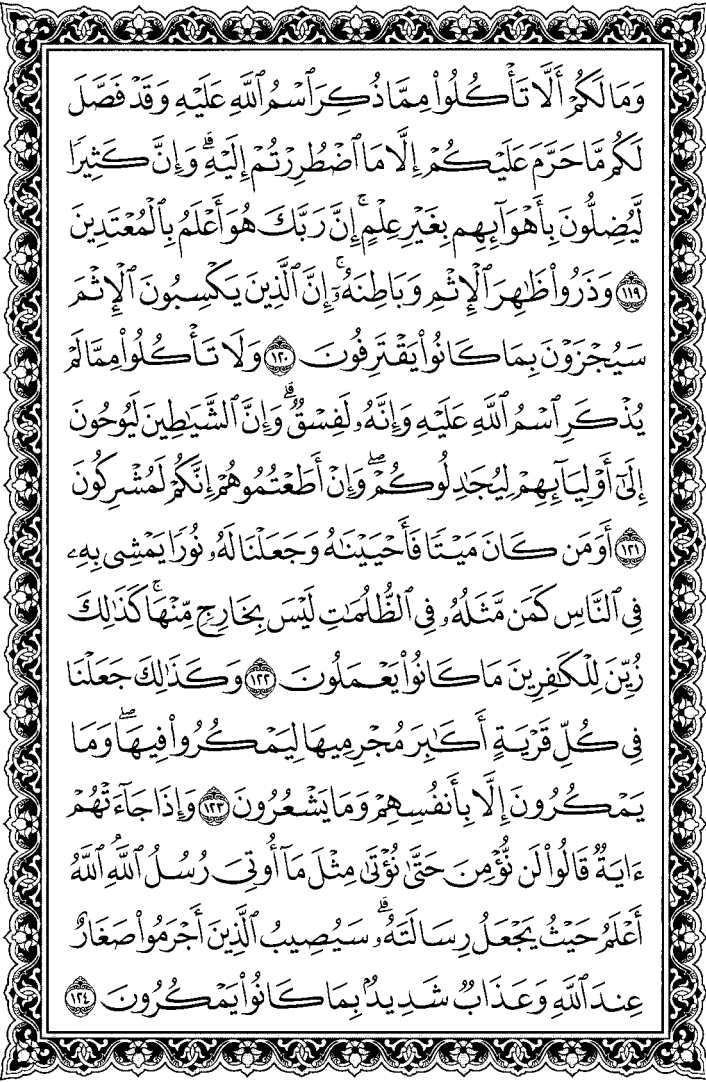 وَمَا لَكُمْ أَلَّا تَأْكُلُوا۟ مِمَّا ذُكِرَ ٱسْمُ ٱللَّهِ عَلَيْهِ وَقَدْ فَصَّلَ
لَكُم مَّا حَرَّمَ عَلَيْكُمْ إِلَّا مَا ٱضْطُرِرْتُمْ إِلَيْهِ ۗ وَإِنَّ كَثِيرًا
لَّيُضِلُّونَ بِأَهْوَآئِهِم بِغَيْرِ عِلْمٍ ۚ إِنَّ رَبَّكَ هُوَ أَعْلَمُ بِٱلْمُعْتَدِينَ
١١٩ وَذَرُوا۟ ظَٰهِرَ ٱلْإِثْمِ وَبَاطِنَهُۥٓ ۚ إِنَّ ٱلَّذِينَ يَكْسِبُونَ ٱلْإِثْمَ
سَيُجْزَوْنَ بِمَا كَانُوا۟ يَقْتَرِفُونَ ١٢٠ وَلَا تَأْكُلُوا۟ مِمَّا لَمْ
يُذْكَرِ ٱسْمُ ٱللَّهِ عَلَيْهِ وَإِنَّهُۥ لَفِسْقٌ ۗ وَإِنَّ ٱلشَّيَٰطِينَ لَيُوحُونَ
إِلَىٰٓ أَوْلِيَآئِهِمْ لِيُجَٰدِلُوكُمْ ۖ وَإِنْ أَطَعْتُمُوهُمْ إِنَّكُمْ لَمُشْرِكُونَ
١٢١ أَوَمَن كَانَ مَيْتًا فَأَحْيَيْنَٰهُ وَجَعَلْنَا لَهُۥ نُورًا يَمْشِى بِهِۦ
فِى ٱلنَّاسِ كَمَن مَّثَلُهُۥ فِى ٱلظُّلُمَٰتِ لَيْسَ بِخَارِجٍ مِّنْهَا ۚ كَذَٰلِكَ
زُيِّنَ لِلْكَٰفِرِينَ مَا كَانُوا۟ يَعْمَلُونَ ١٢٢ وَكَذَٰلِكَ جَعَلْنَا
فِى كُلِّ قَرْيَةٍ أَكَٰبِرَ مُجْرِمِيهَا لِيَمْكُرُوا۟ فِيهَا ۖ وَمَا
يَمْكُرُونَ إِلَّا بِأَنفُسِهِمْ وَمَا يَشْعُرُونَ ١٢٣ وَإِذَا جَآءَتْهُمْ
ءَايَةٌ قَالُوا۟ لَن نُّؤْمِنَ حَتَّىٰ نُؤْتَىٰ مِثْلَ مَآ أُوتِىَ رُسُلُ ٱللَّهِ ۘ ٱللَّهُ
أَعْلَمُ حَيْثُ يَجْعَلُ رِسَالَتَهُۥ ۗ سَيُصِيبُ ٱلَّذِينَ أَجْرَمُوا۟ صَغَارٌ
عِندَ ٱللَّهِ وَعَذَابٌ شَدِيدٌۢ بِمَا كَانُوا۟ يَمْكُرُونَ ١٢٤